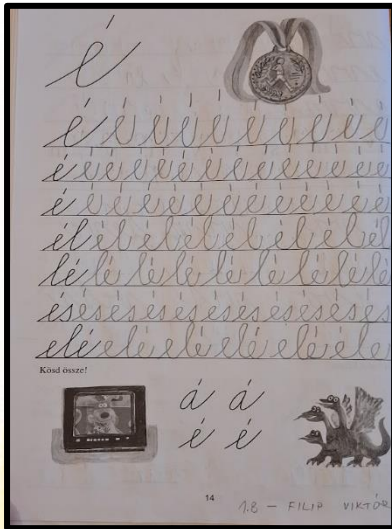 é
é é é é é é é é é é
é é é é é é é é é é é é é é
é é é é é é é é é é é é
él él él él él él él él
lé lé lé lé lé lé lé lé
és és és és és és és és és és és
elé elé elé elé elé elé
Kösd össze!
á á
é é
14
1.B – FILIP VIKTÓR